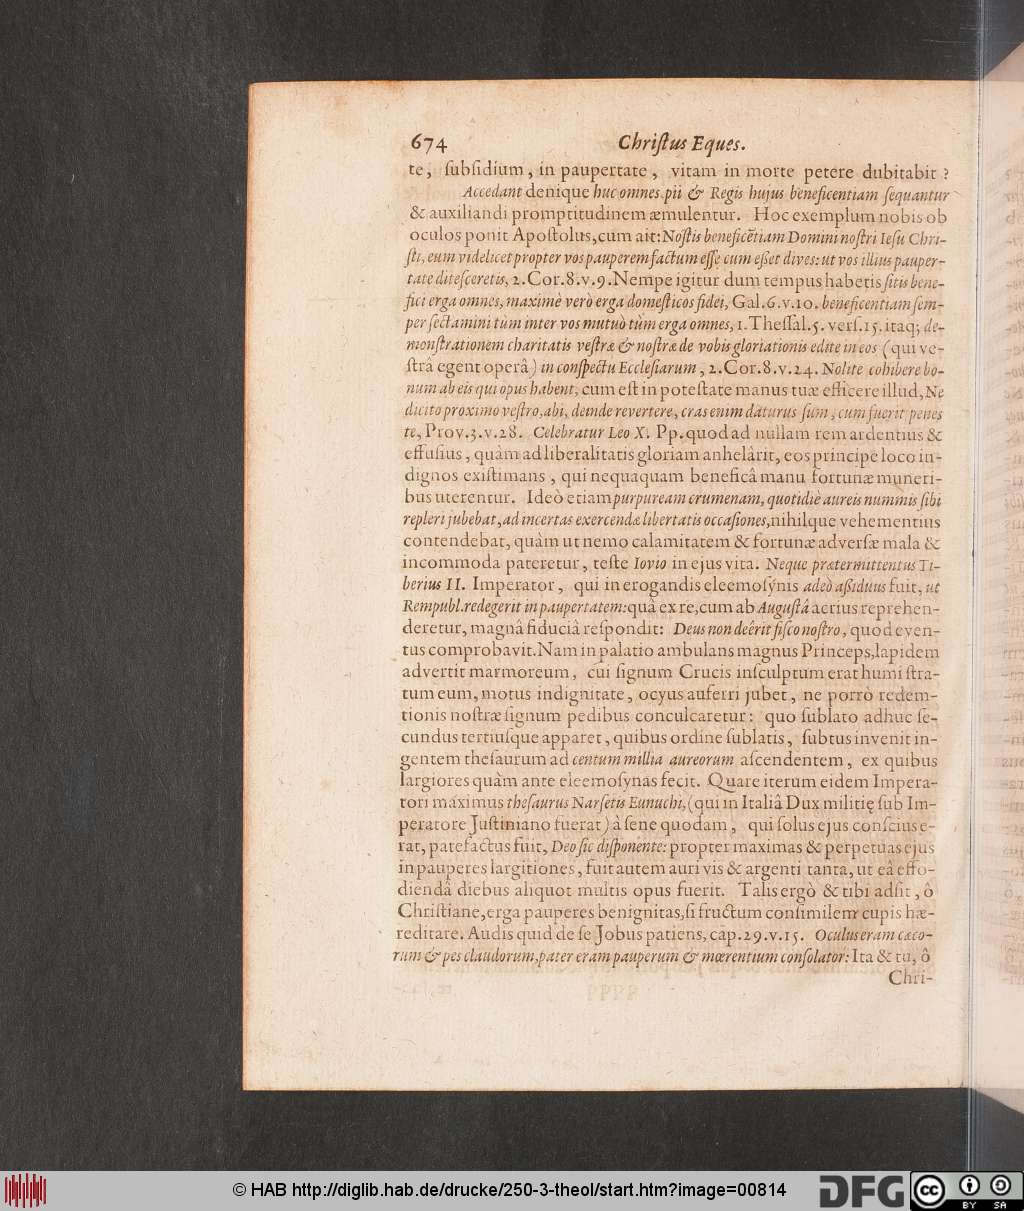 674 Christus Eques.
te, subsidium, in paupertate, vitam in morte petere dubitabit?
Accedant denique huc omnes pii & Regis hujus beneficentiam sequantur
& auxiliandi promptitudinem æmulentur. Hoc exemplum nobis ob
oculos ponit Apostolus, cum ait: Nostis beneficẽtiam Domini nostri Iesu Chri-
sti, eum videlicet propter vos pauperem factum esse cum eßet dives: ut vos illius pauper-
tate ditesceretis, 2. Cor. 8. v. 9. Nempe igitur dum tempus habetis sitis bene-
fici erga omnes, maximè verò erga domesticos fidei, Gal. 6. v. 10. beneficentiam sem-
per sectamini tùm inter vos mutuò tùm erga omnes, 1. Thessal. 5. vers. 15. itaq; de-
monstrationem charitatis vestræ & nostræ de vobis gloriationis edite in eos (qui ve-
strâ egent operâ) in conspectu Ecclesiarum, 2. Cor. 8. v. 24. Nolite cohibere bo-
num ab eis qui opus habent, cum est in potestate manus tuæ efficere illud, Ne
dicito proximo vestro, abi, deinde revertere, cras enim daturus sum, cum fuerit penes
te, Prov. 3. v. 28. Celebratur Leo X. Pp. quod ad nullam rem ardentius &
effusius, quàm ad liberalitatis gloriam anhelârit, eos principe loco in-
dignos existimans, qui nequaquam beneficâ manu fortunæ muneri-
bus uterentur. Ideò etiam purpuream crumenam, quotidiè aureis nummis sibi
repleri jubebat, ad incertas exercendæ libertatis occasiones, nihilque vehementius
contendebat, quàm ut nemo calamitatem & fortunæ adversæ mala &
incommoda pateretur, teste Iovio in ejus vita. Neque prætermittentus Ti-
berius II. Imperator, qui in erogandis eleemosynis adeò aßiduus fuit, ut
Rempubl. redegerit in paupertatem: quâ ex re, cum ab Augustâ acrius reprehen-
deretur, magnâ fiduciâ respondit: Deus non deêrit fisco nostro, quod even-
tus comprobavit. Nam in palatio ambulans magnus Princeps, lapidem
advertit marmoreum, cui signum Crucis insculptum erat humi stra-
tum eum, motus indignitate, ocyus auferri jubet, ne porrò redem-
tionis nostræ signum pedibus conculcaretur: quo sublato adhuc se-
cundus tertiusque apparet, quibus ordine sublatis, subtus invenit in-
gentem thesaurum ad centum millia aureorum ascendentem, ex quibus
largiores quàm ante eleemosynas fecit. Quare iterum eidem Impera-
tori maximus thesaurus Narsetis Eunuchi, (qui in Italiâ Dux militię sub Im-
peratore Justiniano fuerat) â sene quodam, qui solus ejus conscius e-
rat, patefactus fuit, Deo sic disponente: propter maximas & perpetuas ejus
in pauperes largitiones, fuit autem auri vis & argenti tanta, ut eâ effo-
diendâ diebus aliquot multis opus fuerit. Talis ergò & tibi adsit, ô
Christiane, erga pauperes benignitas, si fructum consimilem cupis hæ-
reditare. Audis quid de se Jobus patiens, cap. 29. v. 15. Oculus eram cæco-
rum & pes claudorum, pater eram pauperum & mœrentium consolator: Ita & tu, ô
Chri-
© HAB http://diglib.hab.de/drucke/250-3-theol/start.htm?image=00814
DFG
cc BY SA